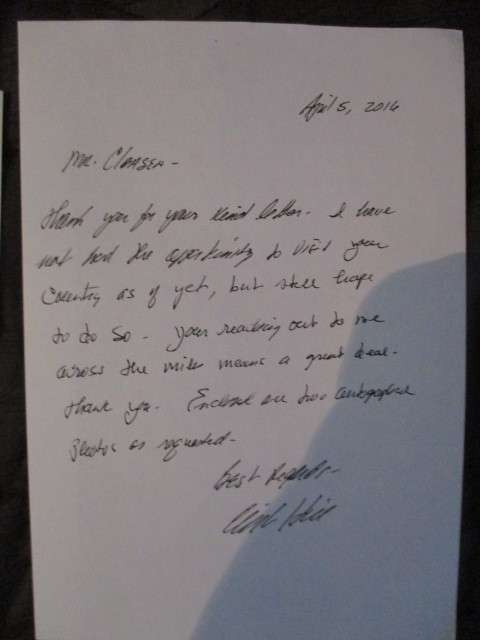 April 5, 2016
Mr. Clausen -
Thank you for your kind letter. I have
not had the opportunity to visit your
Country as of yet, but still hope
to do so - Your reaching out to me
across the miles means a great deal.
Thank you. Enclosed are two autographed
photos as requested -
Best Regards -
Clint Hill